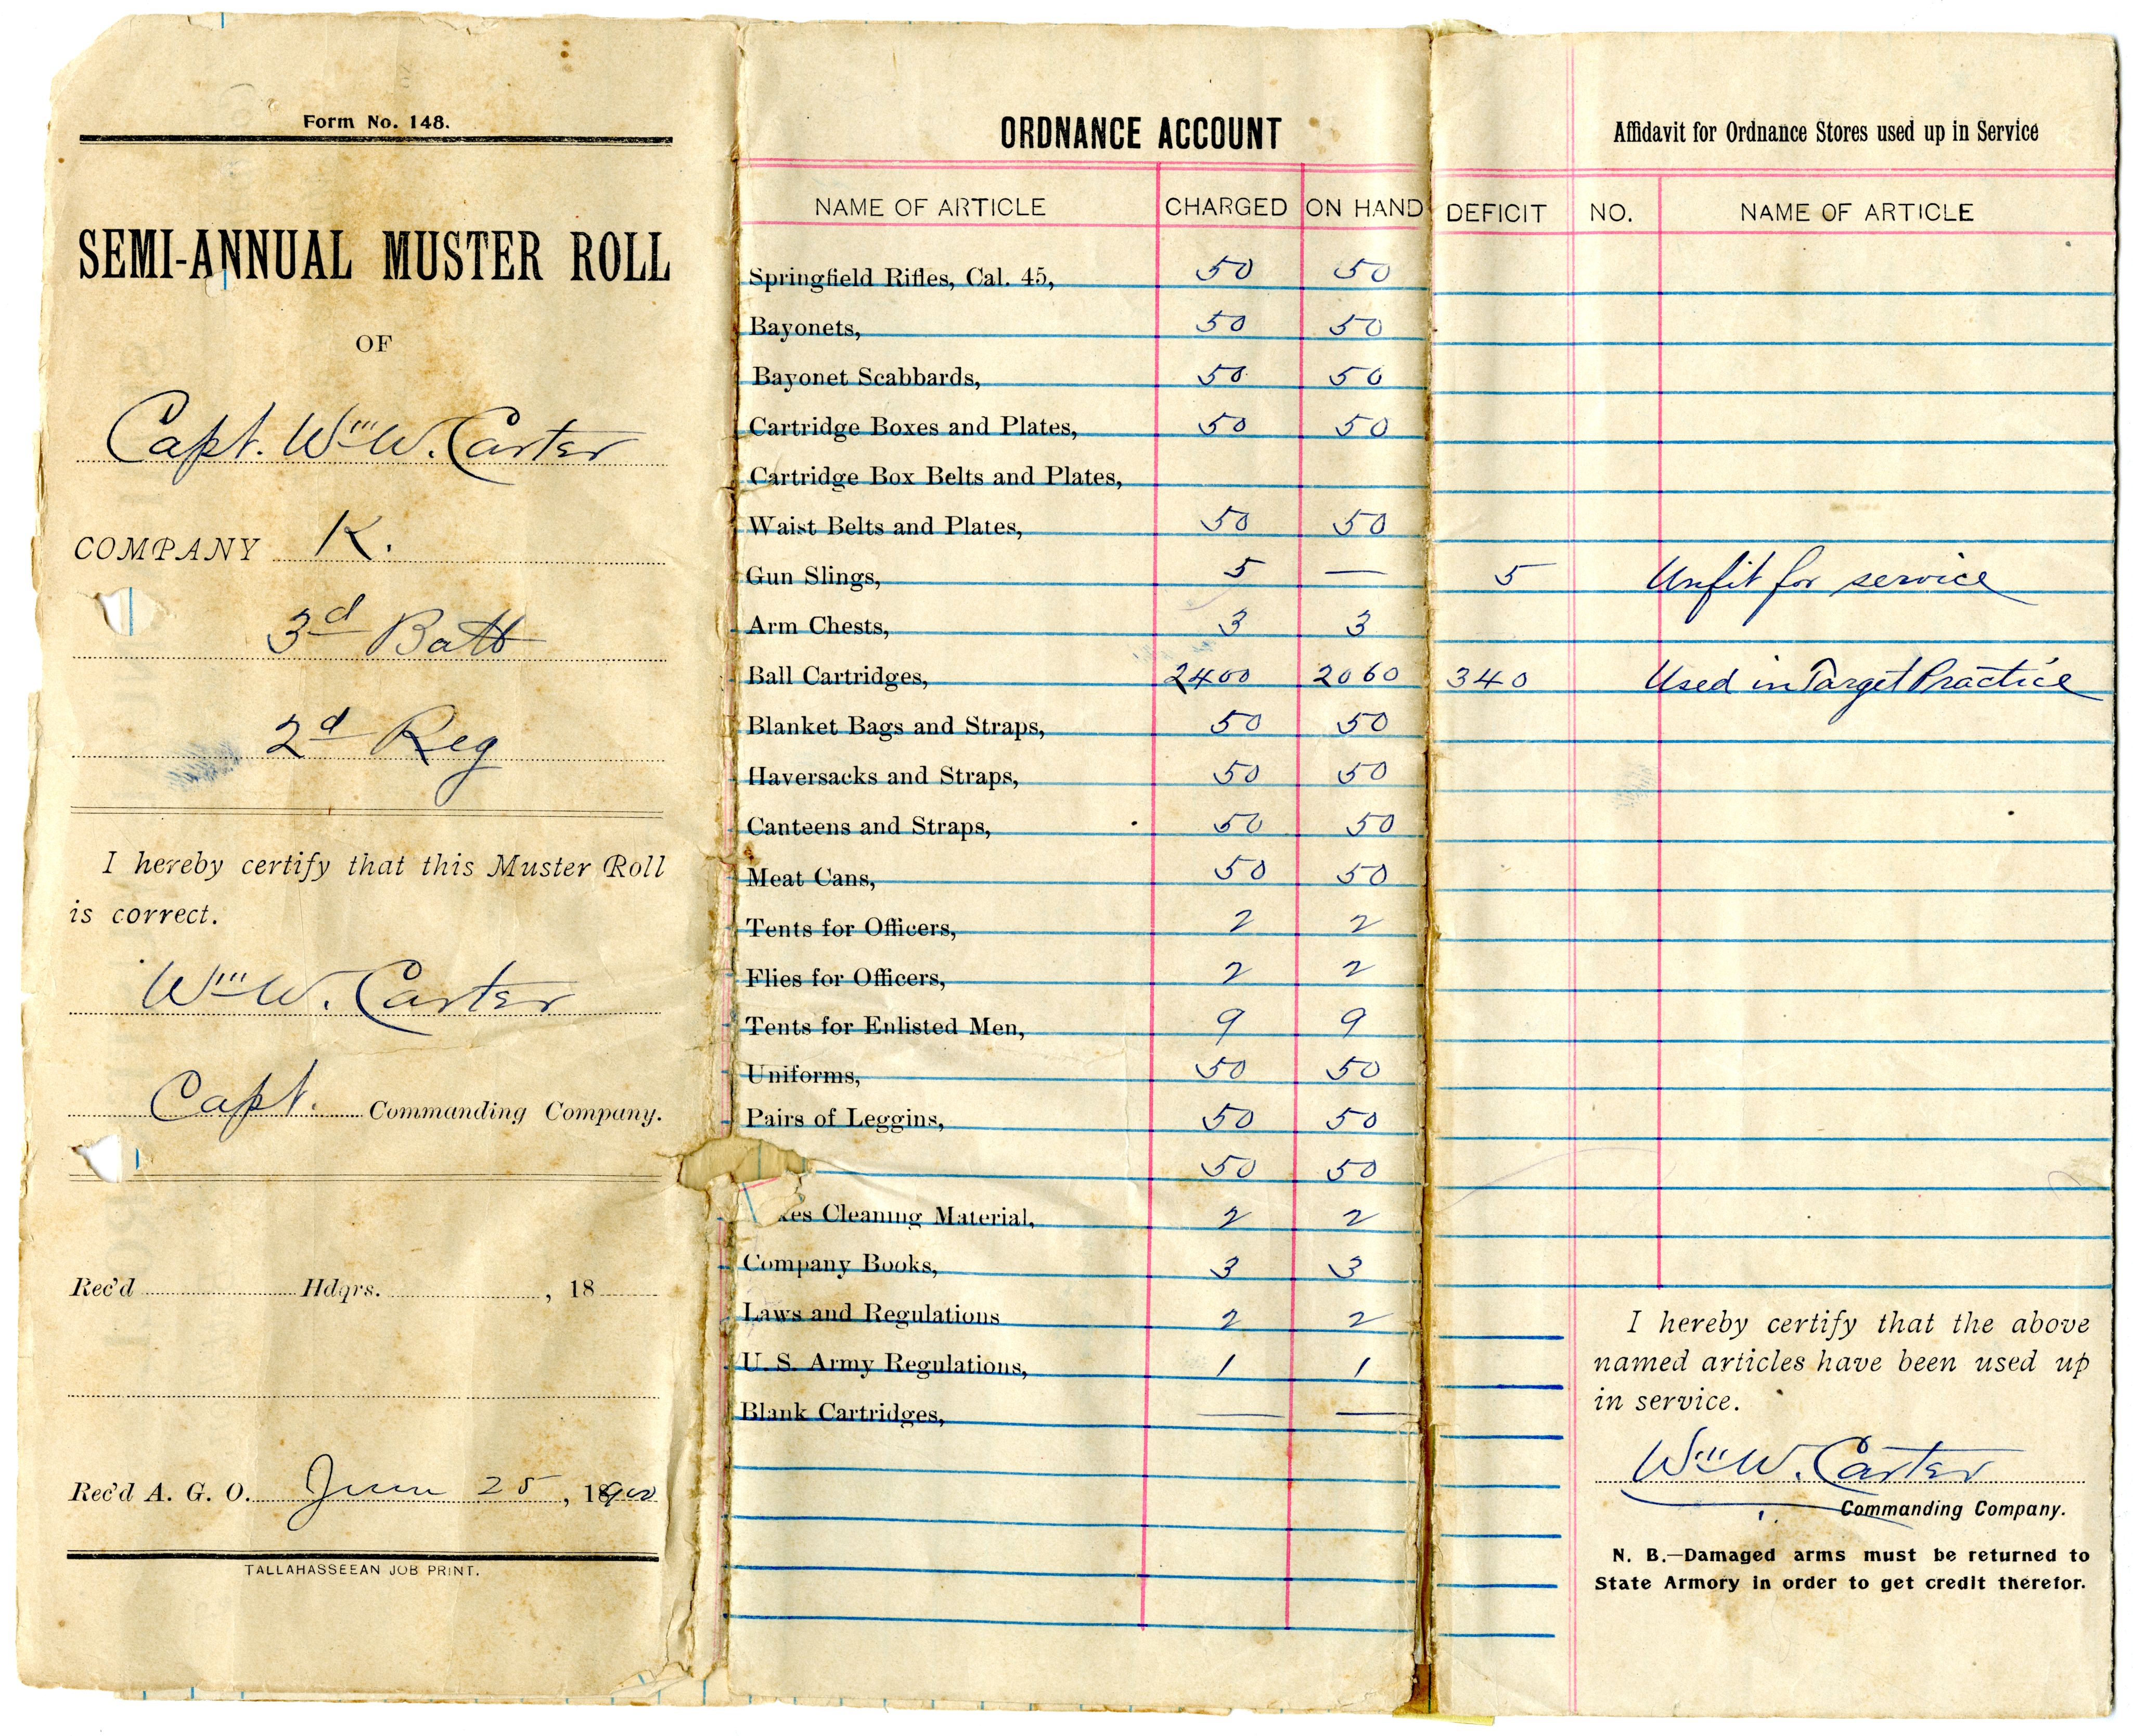 Form No. 148.
SEMI-ANNUAL MUSTER ROLL
OF
Capt. Wm W. Carter
COMPANY K.
3d Batt
2d Reg
I hereby certify that this Muster Roll
is correct.
Wm W. Carter
Capt. Commanding Company.
Rec'd Hdqrs. , 18
Rec'd A. G. O. June 25, 1900
TALLAHASSEEAN JOB PRINT.
ORDNANCE ACCOUNT
NAME OF ARTICLE CHARGED ON HAND DEFICIT
Springfield Rifles, Cal. 45, 50 50
Bayonets, 50 50
Bayonet Scabbards, 50 50
Cartridge Boxes and Plates, 50 50
Cartridge Box Belts and Plates,
Waist Belts and Plates, 50 50
Gun Slings, 5 — 5
Arm Chests, 3 3
Ball Cartridges, 2400 2060 340
Blanket Bags and Straps, 50 50
Haversacks and Straps, 50 50
Canteens and Straps, 50 50
Meat Cans, 50 50
Tents for Officers, 2 2
Flies for Officers, 2 2
Tents for Enlisted Men, 9 9
Uniforms, 50 50
Pairs of Leggins, 50 50
50 50
Cleaning Material, 2 2
Company Books, 3 3
Laws and Regulations 2 2
U. S. Army Regulations, 1 1
Blank Cartridges, — —
Affidavit for Ordnance Stores used up in Service
NO. NAME OF ARTICLE
Unfit for service
Used in Target Practice
I hereby certify that the above
named articles have been used up
in service.
Wm W. Carter
Commanding Company.
N. B.—Damaged arms must be returned to
State Armory in order to get credit therefor.